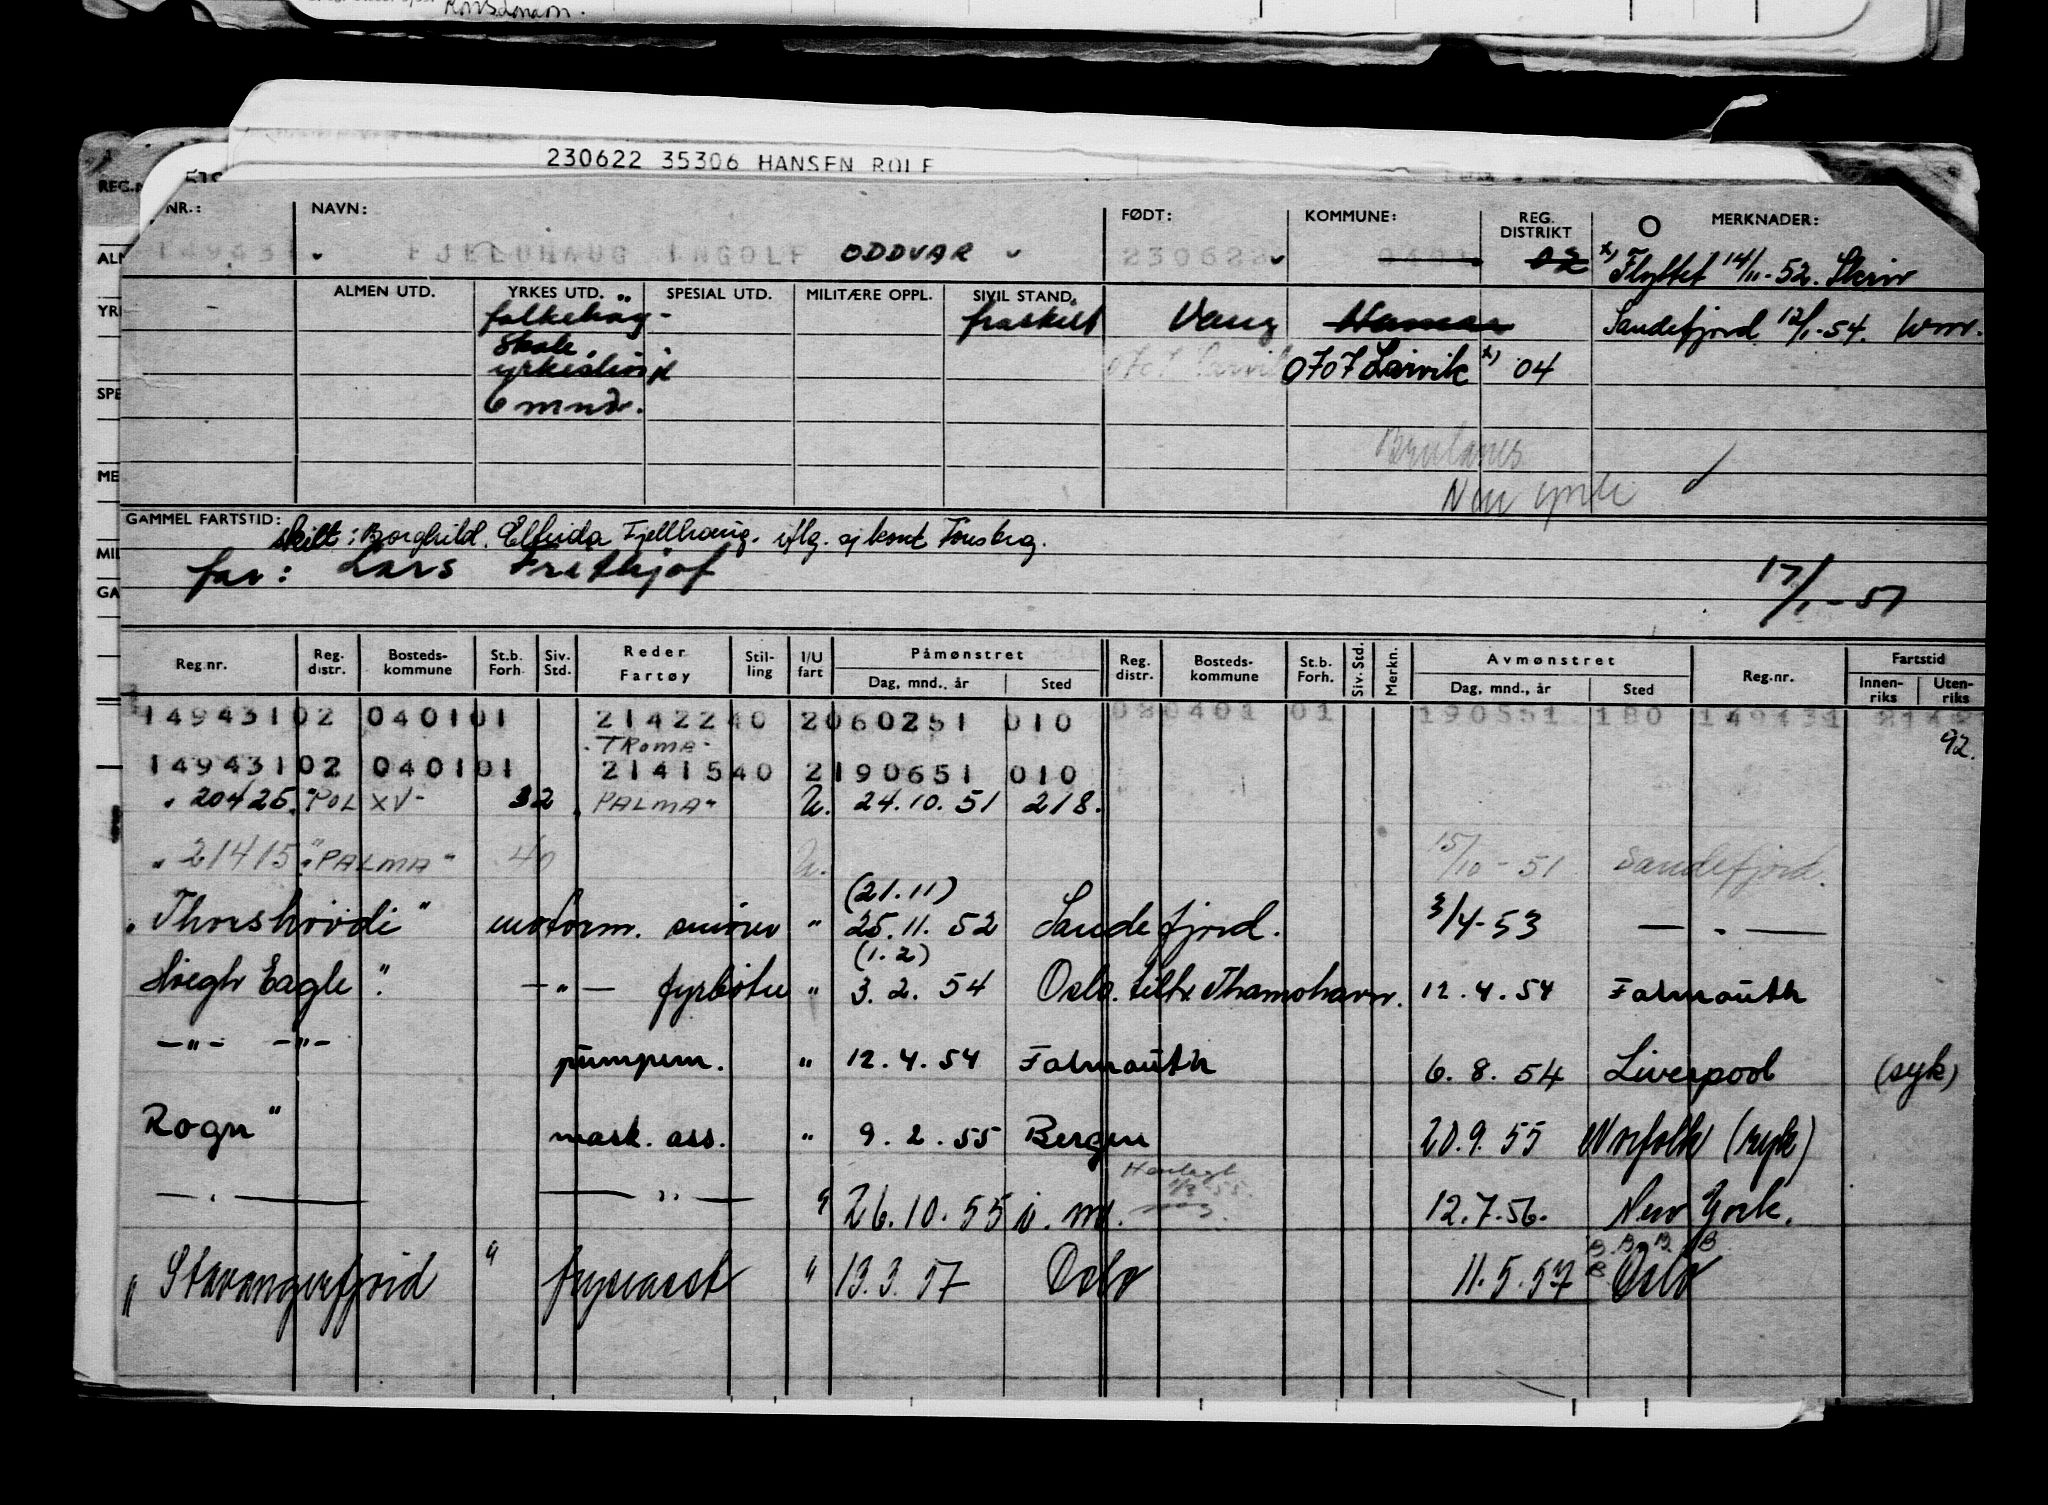 230622 35306 HANSEN ROLF
REG.N
NR.: NAVN: FØDT: KOMMUNE: REG. DISTRIKT MERKNADER:
149431 FJELDHAUG INGOLF ODDVAR 230622 0401 02 x) Flyttet 14/11-52. Skriv
ALMEN UTD. YRKES UTD. SPESIAL UTD. MILITÆRE OPPL. SIVIL STAND.
folkehøg- fraskilt Vang Hamar Sandefjord 12/1-54.
skole,
0707 Larvik 0707 Larvik x) 04
6 mnd.
GAMMEL FARTSTID:
skilt: Borghild Elfrida Fjellhaug. iflg. sj kont Tønsberg.
far: Lars Frithjof 17/1-51
Reg.nr. Reg. distr. Bosteds- kommune St.b. Forh. Siv. Std. Reder Fartøy Stil- ling I/U fart Påmønstret Dag, mnd., år Sted Reg. distr. Bosteds- kommune St.b. Forh. Siv. Std. Merkn. Avmønstret Dag, mnd., år Sted Reg.nr. Fartstid Innen- riks Uten- riks
14943102 040101 2142240 2060251 010 020401 01 190551 180 149431
"TROMA" 92.
14943102 040101 2141540 2190651 010
"20425. "POL XV" 32 "PALMA" U. 24.10.51 218.
"21415 "PALMA" 40 U. 15/10-51 Sandefjord.
(21.11)
"Thorshövdi" motorm. smører " 25.11.52 Sandefjord. 3/4-53 — " —
(1.2)
Höegh Eagle". — " — fyrböter " 3.2.54 Oslo. tiltr. Thamshavn. 12.4.54 Falmouth
— " — — " — pumpem. " 12.4.54 Falmouth 6.8.54 Liverpool (syk)
Rogn" mask. ass. " 9.2.55 Bergen 20.9.55 Norfolk (syk)
— " — — " — " 26.10.55 i. m. 12.7.56. New York.
"Stavangerfjord" fryseasst " 13.3.57 Oslo 11.5.57 Oslo
B. B. B. B
B